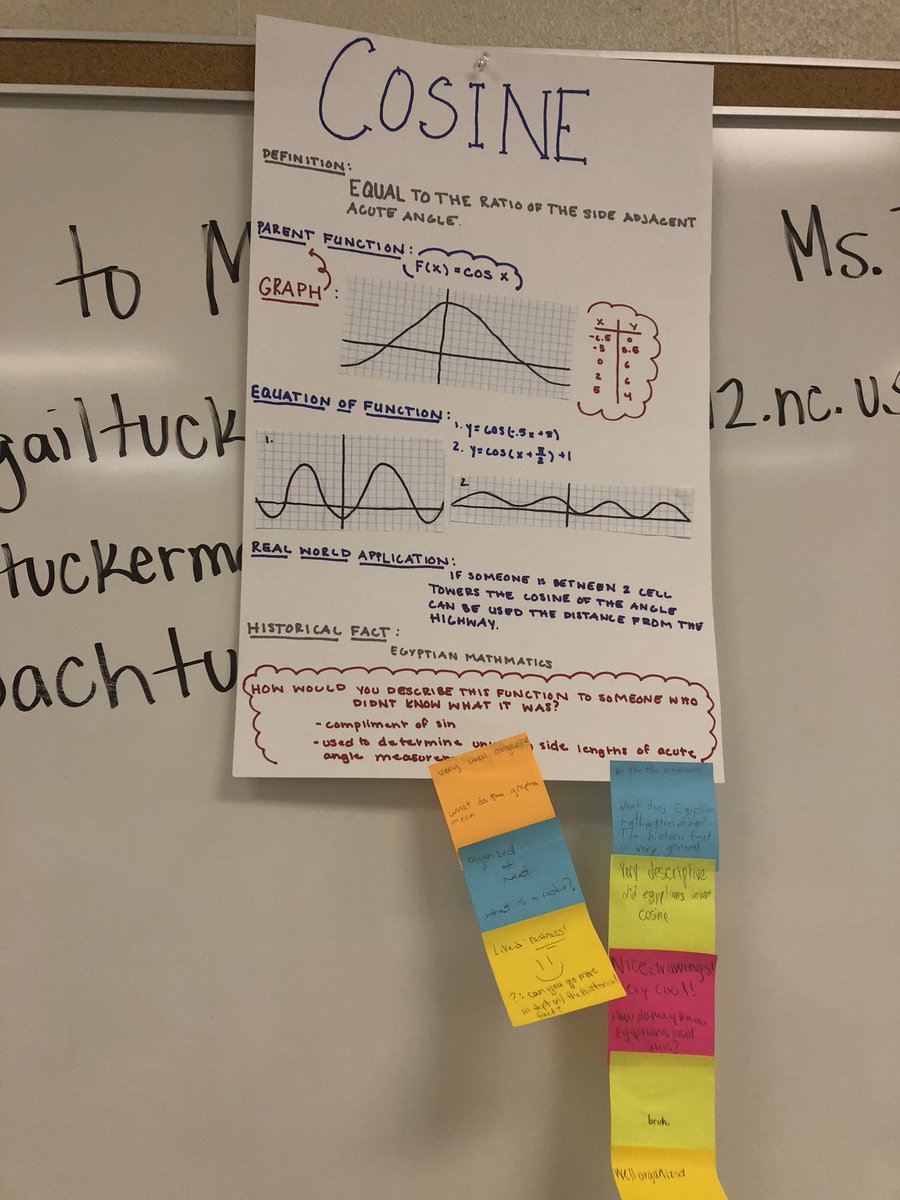 COSINE
DEFINITION:
EQUAL TO THE RATIO OF THE SIDE ADJACENT
ACUTE ANGLE.
PARENT FUNCTION:
F(X) = COS X
GRAPH:
X Y
0
-3 5.5
0 6
2 6
5 4
EQUATION OF FUNCTION:
1. y = cos(-.5x+π)
2. y = cos(x + π/2) + 1
1.
2.
REAL WORLD APPLICATION:
IF SOMEONE IS BETWEEN 2 CELL
TOWERS THE COSINE OF THE ANGLE
CAN BE USED THE DISTANCE FROM THE
HIGHWAY.
HISTORICAL FACT:
EGYPTIAN MATHMATICS
HOW WOULD YOU DESCRIBE THIS FUNCTION TO SOMEONE WHO
DIDNT KNOW WHAT IT WAS?
- compliment of sin
- used to determine side lengths of acute
angle
to M
Ms.
gailtuck
12.nc.us
tuckerm
oachtu
very well
what do the graphs
mean
organized
+
neat
what is a
Liked: neatness!
?: can you go more
in dept w/ the historical
fact?
We like the neatness!
What does Egyptian
mathmatics mean?
The historic fact
is very general
Very descriptive
did egyptians invent
cosine
Nice drawings!
very cool!
How do they know
Egyptians used
this?
bruh.
Well organized